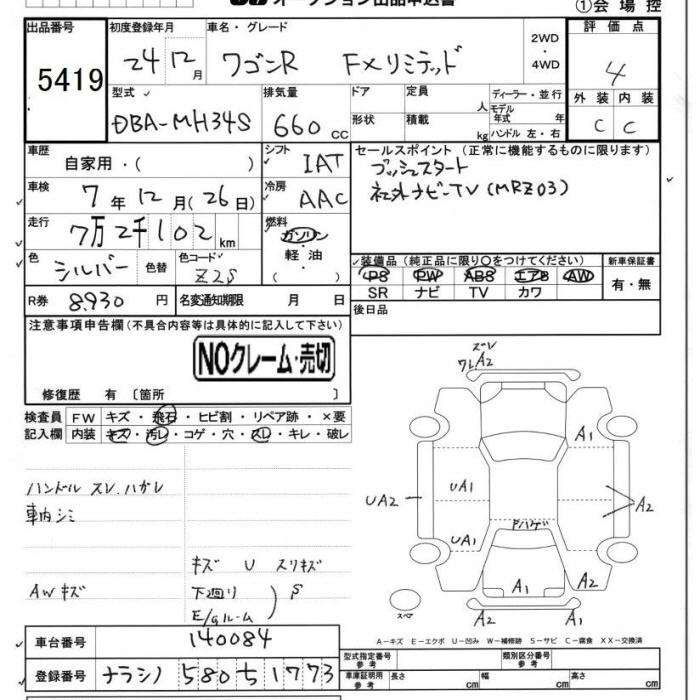 オークション出品申込書
①会場控
出品番号 初度登録年月 車名・グレード 評価点
5419 24年12月 ワゴンR FXリミテッド 2WD・4WD 4
型式 排気量 ドア 定員 人 ディーラー・並行 外装 内装
DBA-MH34S 660cc 形状 積載 kg モデル年式 年 ハンドル 左・右 C C
車歴 自家用・( ) シフト IAT セールスポイント (正常に機能するものに限ります)
プッシュスタート
社外ナビ・TV (MRZ03)
車検 7年12月(26日) 冷房 AAC
走行 7万2千102km 燃料 ガソリン・軽油・( )
色 シルバー 色替 色コード Z2S
装備品 (純正品に限り○をつけてください) 新車保証書
PS PW ABS エアB AW 有・無
SR ナビ TV カワ
R券 8930円 名変通知期限 月 日 後日品
注意事項申告欄 (不具合内容等は具体的に記入して下さい)
NOクレーム・売切
修復歴 有 〔箇所 〕
検査員 FW キズ・飛石・ヒビ割・リペア跡・×要
記入欄 内装 キズ・汚レ・コゲ・穴・スレ・キレ・破レ
ハンドル スレ、ハガレ
車内シミ
キズ U スリキズ
AWキズ 下廻り S
E/gルーム
ズレ
ワレA2
A1
UA1
UA2
A2
UA1
Fハゲ
A1 A2
スペア A2 A1
A-キズ E-エクボ U-凹み W-補修跡 S-サビ C-腐食 XX-交換済
車台番号 140084
型式指定番号 参考 類別区分番号 参考
登録番号 ナラシノ 580 ち 1773
車庫証明用 参考 長さ cm 幅 cm 高さ cm